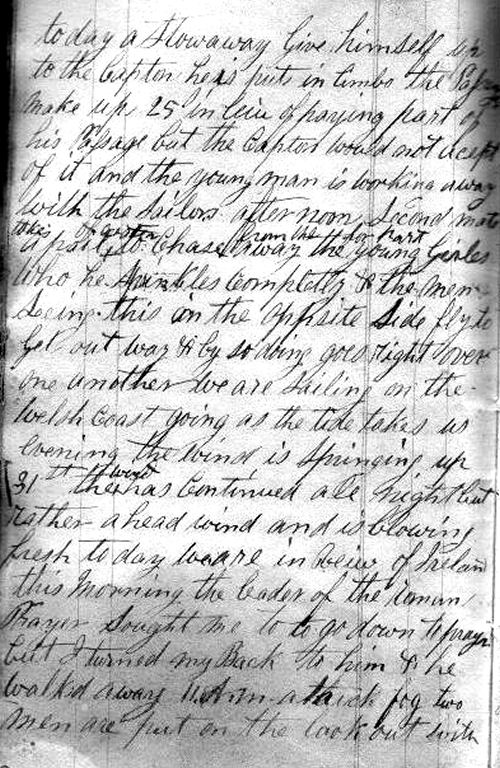 today a Stowaway Give himself up
to the Capton he is put in limbo the
make up 25 in leiu of paying part of
his Passage but the Capton would not acept
of it and the young man is working away
with the sailors afternoon Second mate
takes of water from the for part
a part to Chase away the young Girles
who he Sprinkles Completly & the men
Seeing this on the oppsite Side fly to
Get out way & by so doing goes right over
one another we are Sailing on the
Welsh Coast going as the tide takes us
evening the wind is Springing up
31st the wind has Continued all night but
rather ahead wind and is blowing
fresh today we are in veiw of Ireland
this Morning the leader of the
Prayer Sought me to to go down to prayr
but I turned my Back to him & he
walkd away 11 A.m. a thick fog two
men are put on the look out with